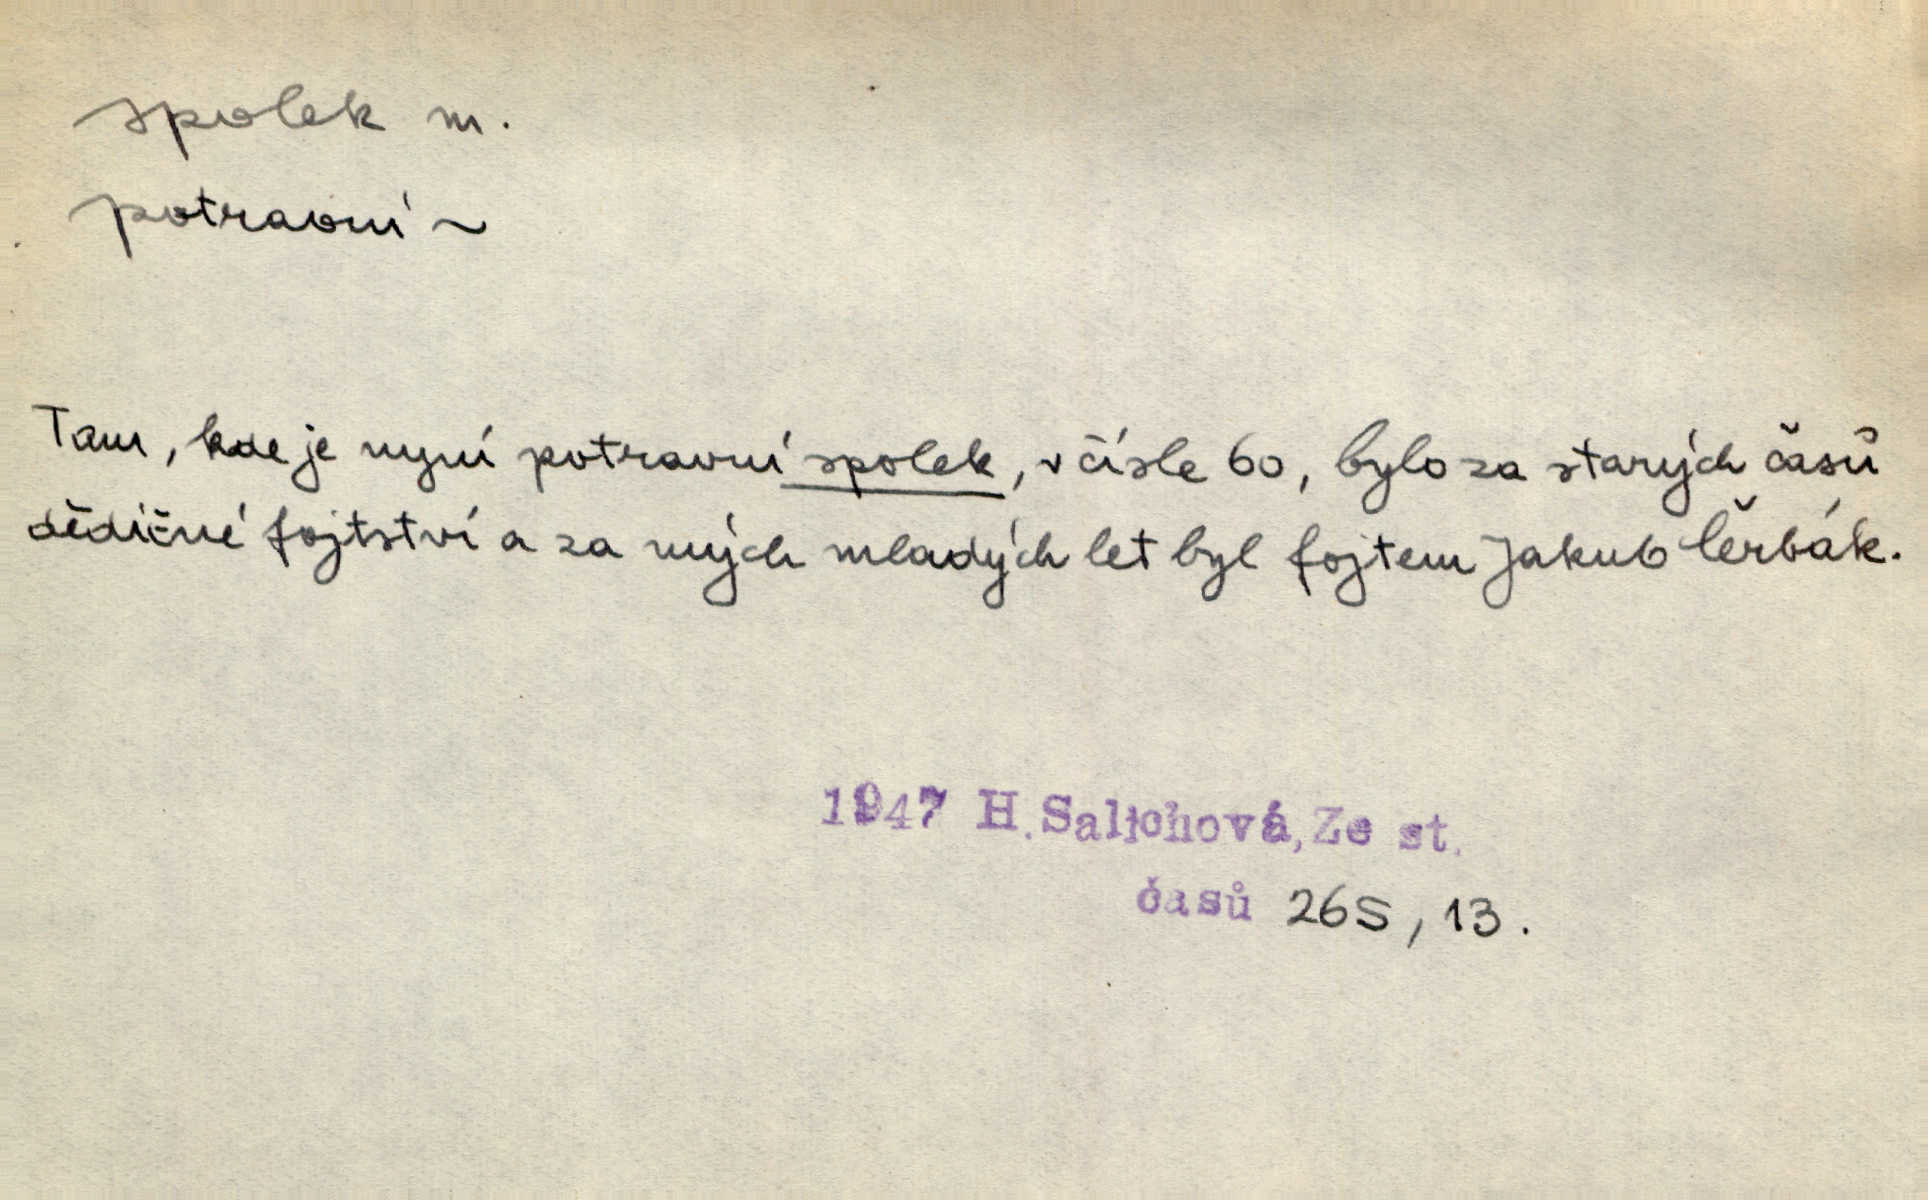 spolek m.
potravní ~
Tam, kde je nyní potravní spolek, v čísle 60, bylo za starých časů
dědičné fojtství a za mých mladých let byl fojtem Jakub Čeřbák.
1947 H.Salichová,Ze st.
časů 26S, 13.